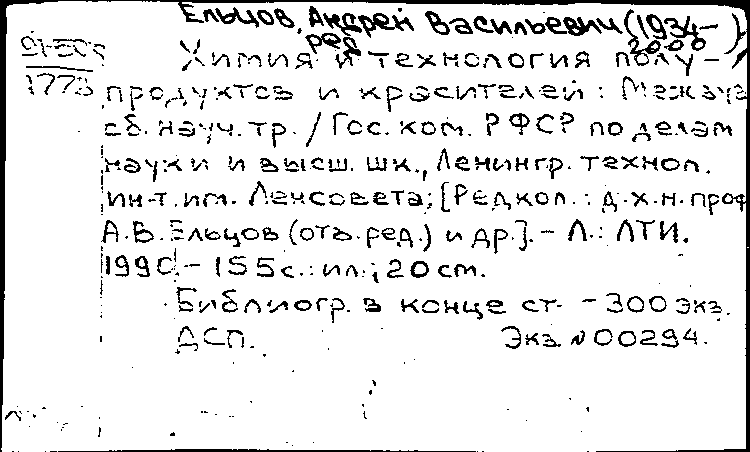 Ельцов, Андрей Васильевич (1934-
ред 2000)
Химия и технология полу-
1773 продуктов и красителей: Межвуз
сб. науч. тр. / Гос. ком. РФСР по делам
науки и высш. шк., Ленингр. технол.
ин-т. им. Ленсовета; [Редкол.: д.х.н. проф
А.В. Ельцов (отв. ред.) и др.]. - Л.: ЛТИ.
1990. - 155 с.: ил.; 20 см.
Библиогр. в конце ст. - 300 экз.
ДСП. Экз. № 00294.